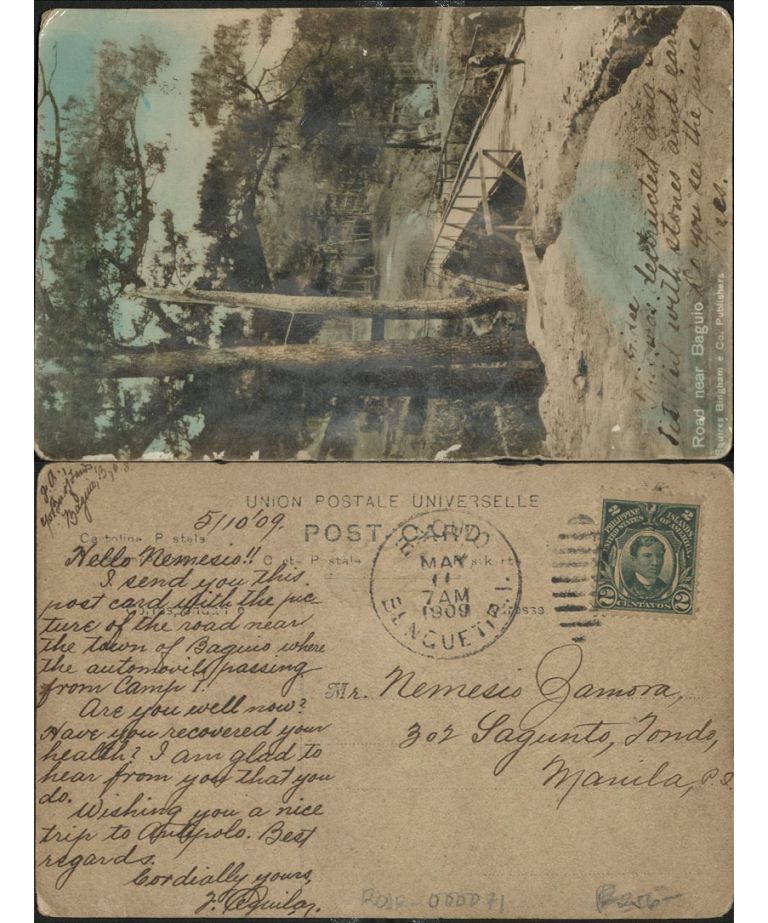 constructed and
with stones and
Do you see the pine
trees.
Road near Baguio
Squires Bingham & Co. Publishers
Baguio, B., P. I.
UNION POSTALE UNIVERSELLE
5/10'09.
POST CARD
Cartolina Postale
MAY
11
7AM
1909
BENGUET, P.I.
PHILIPPINE ISLANDS
UNITED STATES OF AMERICA
2 CENTAVOS 2
Hello Nemesio!!
I send you this
post card with the pic-
ture of the road near
the town of Baguio where
the automovils passing
from Camp 1.
Are you well now?
Have you recovered your
health? I am glad to
hear from you that you
do.
Wishing you a nice
trip to Antipolo. Best
regards.
Cordially yours,
J. Aguilar
Mr. Nemesio Zamora,
302 Sagunto, Tondo,
Manila, P.I.